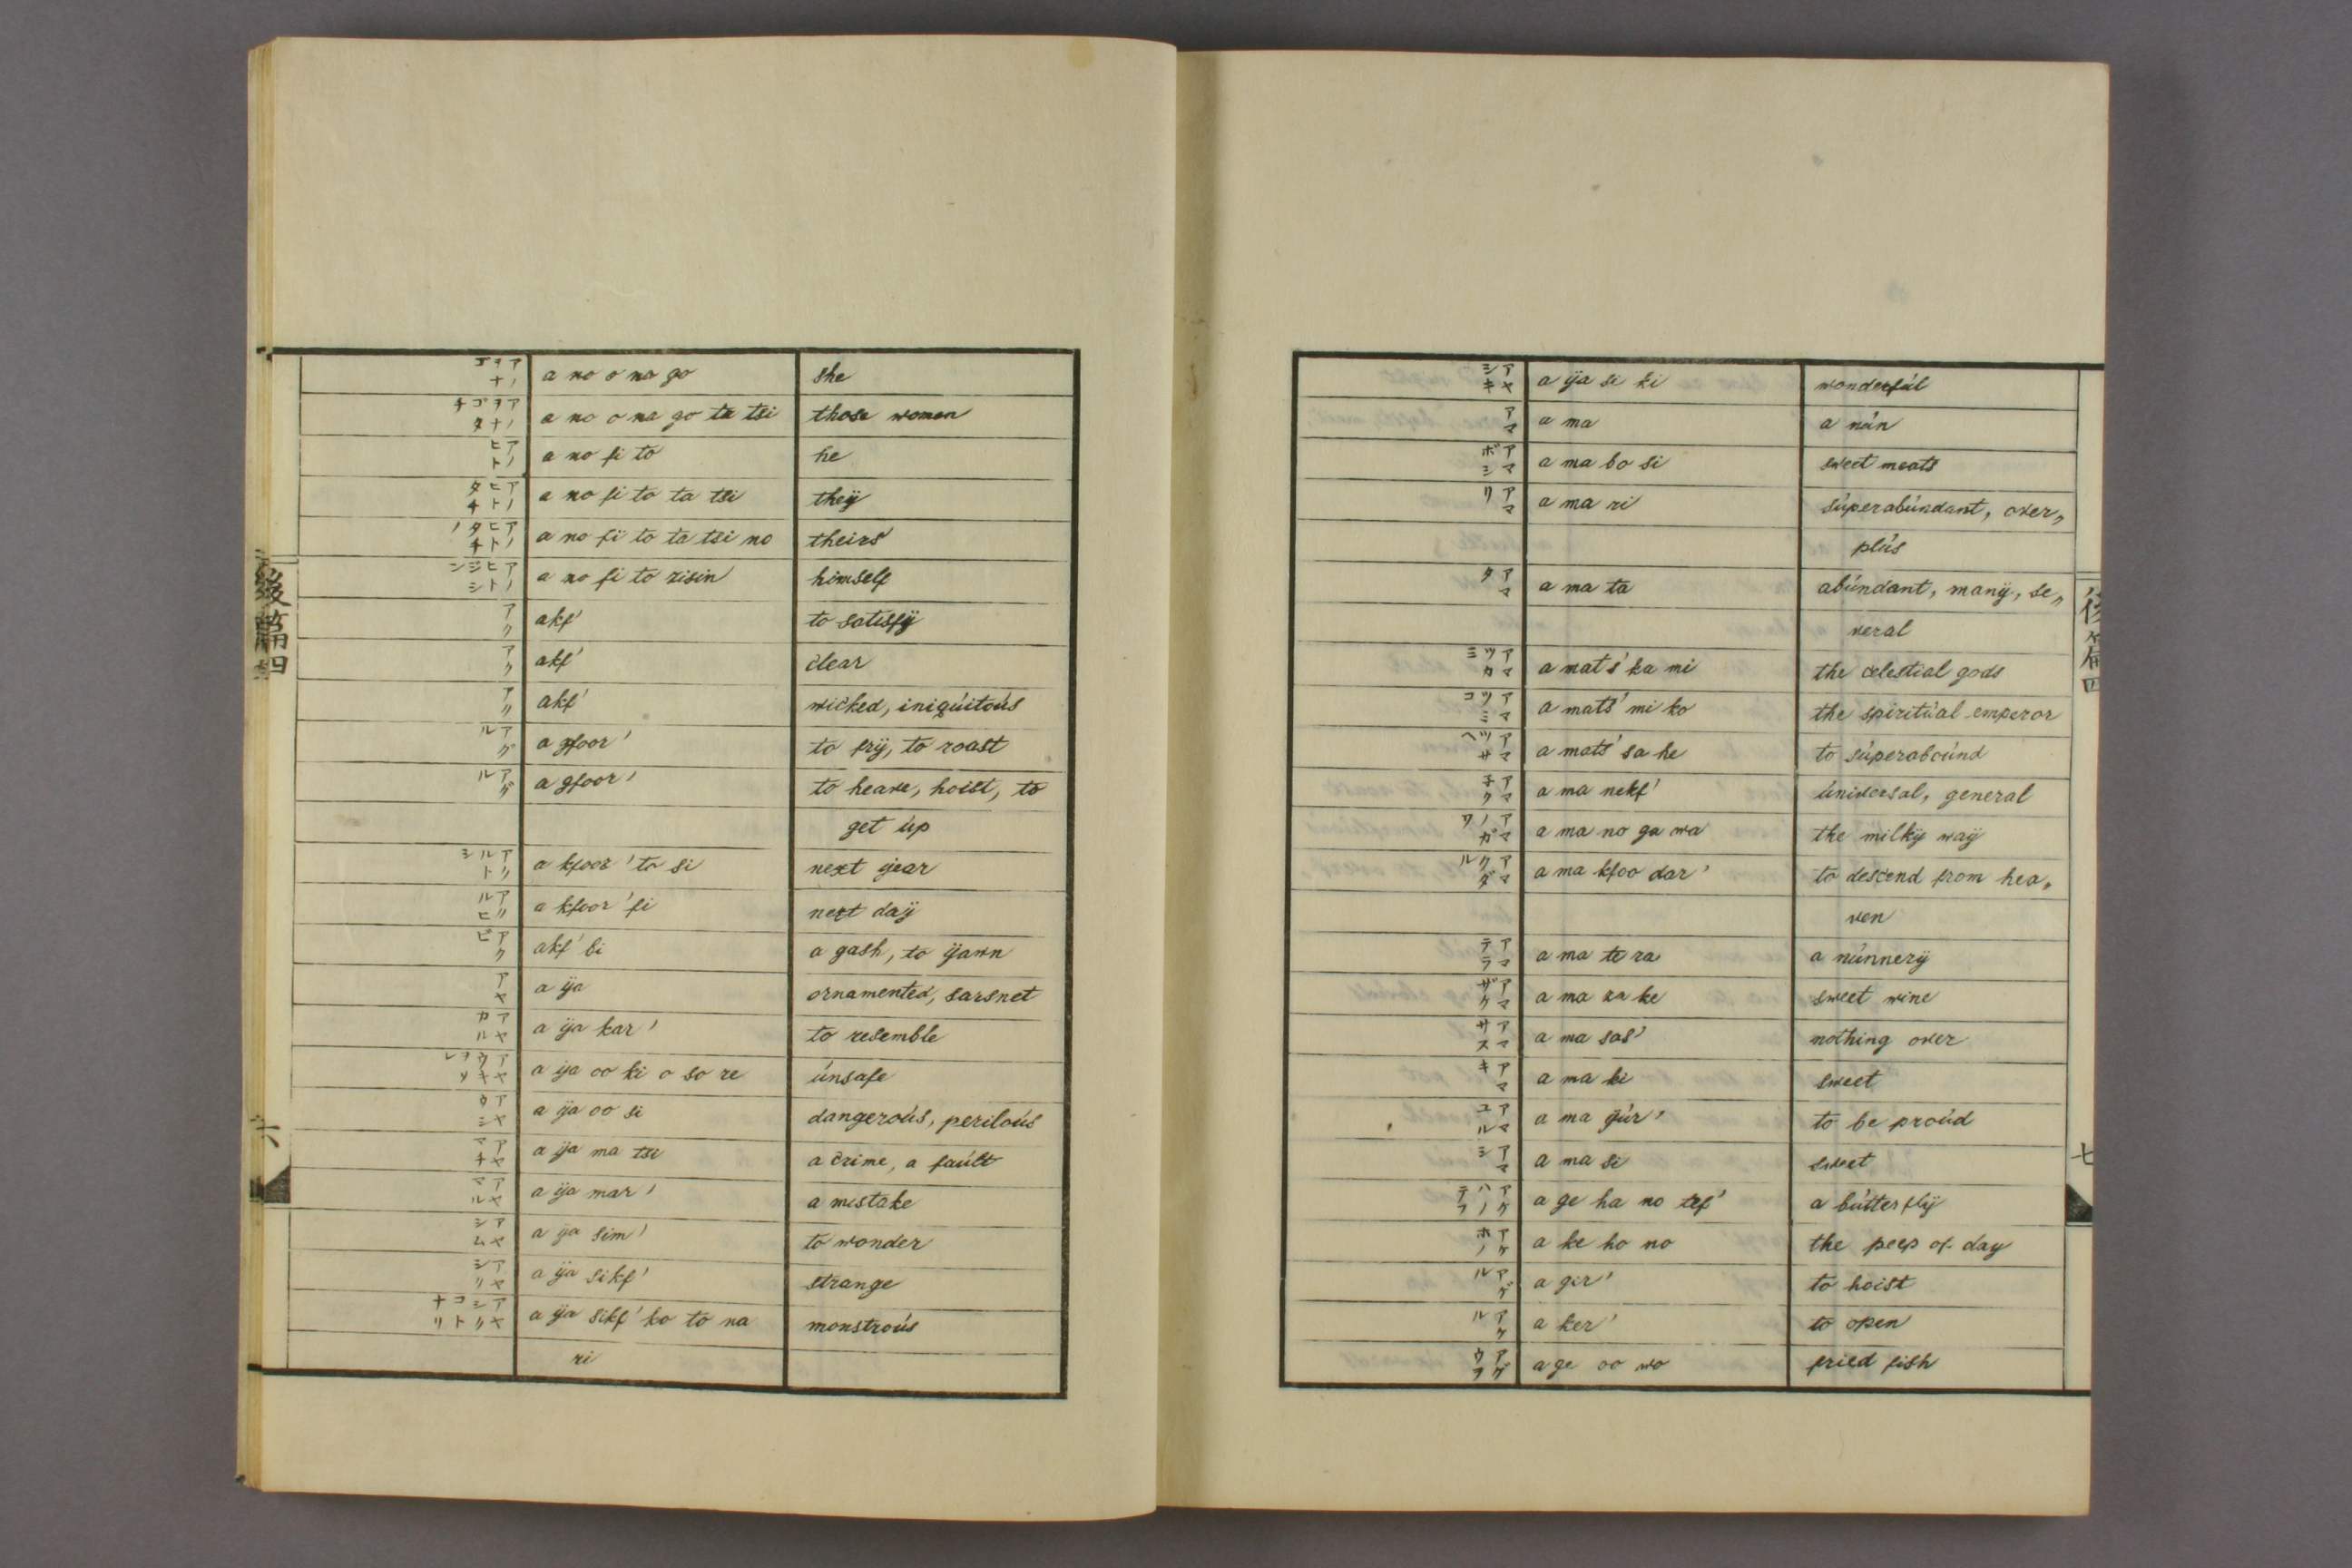 アノヲナゴ a no o na go she
アノヲナゴタチ a no o na go ta tsi those women
アノヒト a no fi to he
アノヒトタチ a no fi to ta tsi theÿ
アノヒトタチノ a no fi to ta tsi no theirs
アノヒトジシン a no fi to zisin himself
アク akf' to satisfÿ
アク akf' clear
アク akf' wicked, iniqúitoús
アグル a gfoor' to frÿ, to roast
アグル a gfoor' to heave, hoist, to
get úp
アクルトシ a kfoor' to si next ÿear
アクルヒ a kfoor' fi next daÿ
アクビ akf' bi a gash, to ÿawn
アヤ a ÿa ornamented, sarsnet
アヤカル a ÿa kar' to resemble
アヤウキヲソレ a ÿa oo ki o so re únsafe
アヤウシ a ÿa oo si dangeroús, periloús
アヤマチ a ÿa ma tsi a crime, a faúlt
アヤマル a ÿa mar' a mistake
アヤシム a ÿa sim' to wonder
アヤシク a ÿa sikf' strange
アヤシクコトナリ a ÿa sikf' ko to na monstroús
ri
後篇四
六
アヤシキ a ÿa si ki wonderfúl
アマ a ma a nún
アマボシ a ma bo si sweet meats
アマリ a ma ri súperabúndant, over„
plús
アマタ a ma ta abúndant, manÿ, se„
veral
アマツカミ a mats' ka mi the celestial gods
アマツミコ a mats' mi ko the spiritúal emperor
アマツサヘ a mats' sa he to súperaboúnd
アマネク a ma nekf' úniversal, general
アマノガワ a ma no ga wa the milkÿ waÿ
アマクダル a ma kfoo dar' to descend from hea„
ven
アマテラ a ma te ra a núnnerÿ
アマザケ a ma za ke sweet wine
アマサス a ma sas' nothing over
アマキ a ma ki sweet
アマユル a ma ÿúr' to be proúd
アマシ a ma si sweet
アゲハノテフ a ge ha no tef' a bútterflÿ
アケホノ a ke ho no the peep of day
アゲル a ger' to hoist
アケル a ker' to open
アゲウヲ a ge oo wo fried fish
後篇四
七